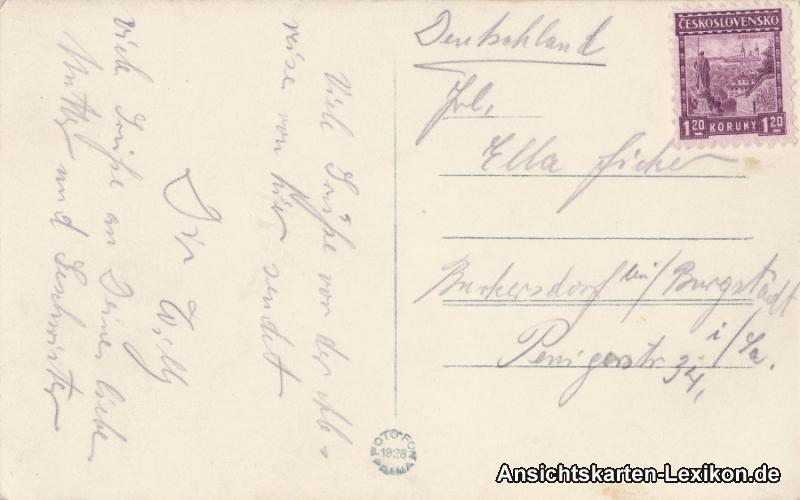 Viele Grüße vor der Ab-
reise von hier sendet
Dir Willy
Viele Grüße an Deine liebe
Mutter und Geschwister
Deutschland
Frl.
Ella
Burkersdorf bei/Burgstädt
i/Sa.
Penigerstr 34,
ČESKOSLOVENSKO
1 20 KORUNY 1 20
FOTOFON
1928
PRAHA
Ansichtskarten-Lexikon.de